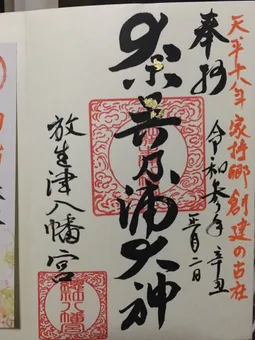 天平十八年 家持卿創建の古社
奉拝
令和参年 辛丑
正月二日
奈呉乃浦大神
放生津八幡宮